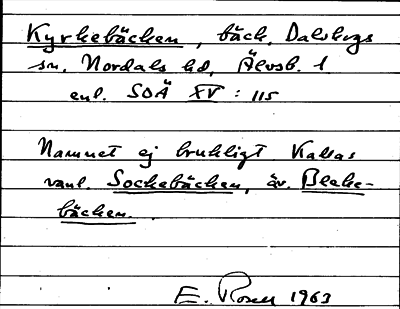 Kyrkebäcken, bäck, Dalskogs
sn, Nordals hd, Älvsb. l
enl. SOÄ XV : 115
Namnet ej brukligt. Kallas
vanl. Sockebäcken, äv. Bleke-
bäcken.
E. Rosell 1963